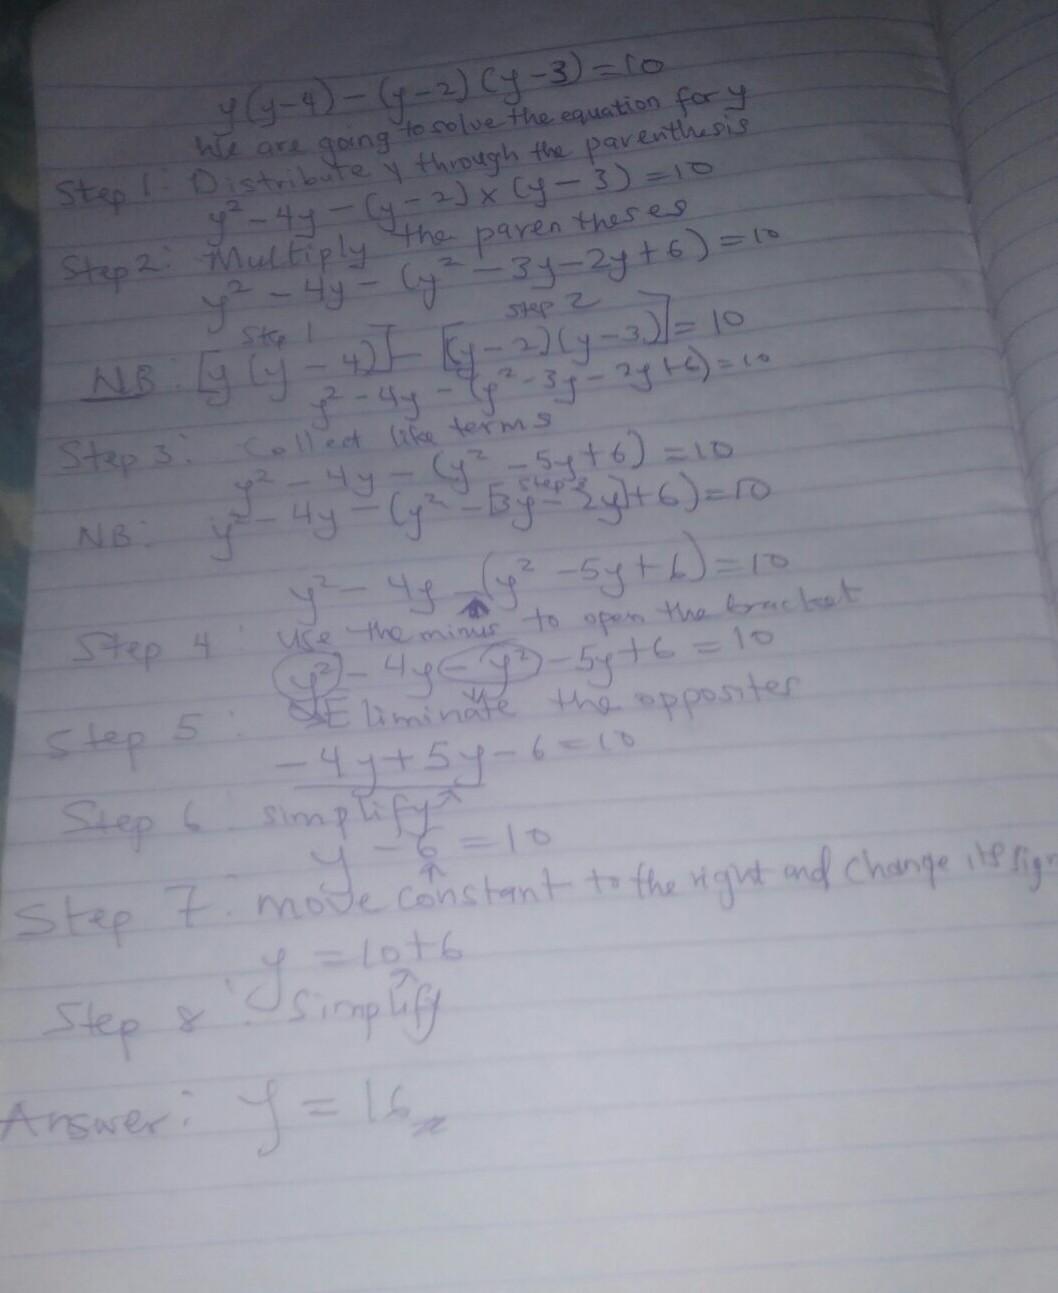 y(y-4) - (y-2)(y-3) = 10
We are going to solve the equation for y
Step 1: Distribute y through the parenthesis
y² - 4y - (y-2) x (y-3) = 10
Step 2: Multiply the parentheses
y² - 4y - (y² - 3y - 2y + 6) = 10
Step 1 step 2
NB: [y(y-4)] - [(y-2)(y-3)] = 10
y² - 4y - (y² - 3y - 2y + 6) = 10
Step 3: Collect like terms
y² - 4y - (y² - 5y + 6) = 10
step 3
NB: y² - 4y - (y² - [3y - 2y] + 6) = 10
y² - 4y - (y² - 5y + 6) = 10
Step 4: Use the minus to open the bracket
y² - 4y - y² - 5y + 6 = 10
Step 5: Eliminate the opposites
-4y + 5y - 6 = 10
Step 6: simplify
y - 6 = 10
Step 7. move constant to the right and change its sign
y = 10 + 6
Step 8: Simplify
Answer: y = 16